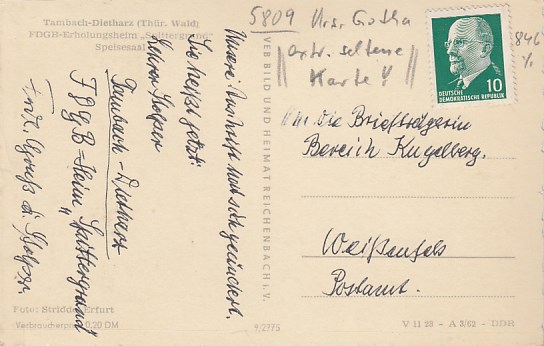 Tambach-Dietharz (Thür. Wald)
FDGB-Erholungsheim „Spittergrund"
Speisesaal
5809 Krs. Gotha
extr. seltene
Karte !!
846
1/1
10
DEUTSCHE
DEMOKRATISCHE REPUBLIK
Unsere Anschrift hat sich geändert.
Sie heißt jetzt:
Tambach-Dietharz
FDGB=Heim „Spittergrund"
Frdl. Grüße
VEB BILD UND HEIMAT REICHENBACH i. V.
An die Briefträgerin
Bereich Kugelberg.
Weißenfels
Postamt.
Foto: Stridde, Erfurt
Verbraucherpreis 0,20 DM
V 11 28 - A 3/63 - DDR